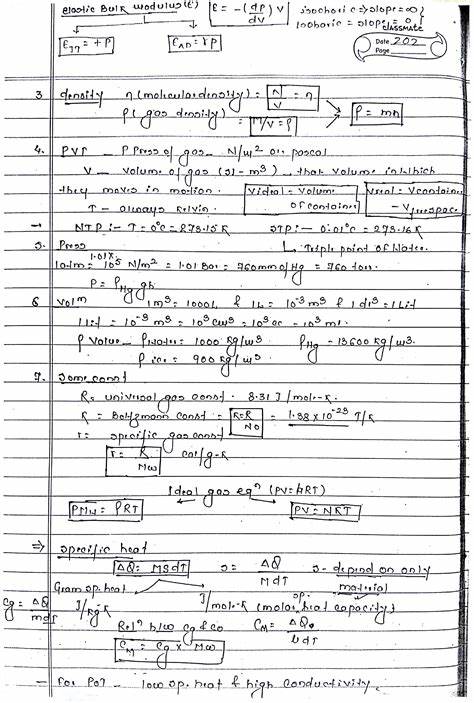 Elastic Bulk modulus(E) E = -(dP/dV) V isochoric => slope = ∞
isobaric = slope = 0
E_IT = +P E_AD = γP
classmate
Date 202
Page
3. density η (molecular density) = N/V = η
ρ (gas density) = M/V = ρ ρ = mn
4. PVT - P Press of gas - N/m² or pascal
V - volume of gas (SI - m³) - that volume in which
they moves in motion. Videal = Volume of container Vreal = Vcontainer - Vfreespace
T - always kelvin.
→ NTP :- T = 0°C = 273.15 K STP :- 0.01°C = 273.16 K
↳ Triple point of Water.
5. Press
1 atm = 1.01 x 10⁵ N/m² = 1.01 Bar = 760mm of Hg = 760 torr.
P = ρHg gh
6 Volm 1m³ = 1000L & 1L = 10⁻³ m³ & 1 dt³ = 1 Lit
1 lit = 10⁻³ m³ = 10³ cm³ = 10³ cc - 10³ ml.
ρ Value - ρwater = 1000 kg/m³ ρHg - 13600 kg/m³.
ρ ice = 900 kg/m³
7. Some const
R = universal gas const. 8.31 J/mole-K.
K = Boltzmann const = K = R/N0 = 1.38 x 10⁻²³ J/K
r = specific gas const
r = R/Mw cal/g-K
Ideal gas eqⁿ (PV = nRT)
PMw = ρRT PV = NKT
⇒ specific heat
ΔQ = MSdT s = ΔQ/MdT s - depend on only
material
Gram sp. heat
Cg = ΔQ/mdt J/kg K J/mole-K (molar sp. heat capacity)
Relⁿ b/w cg & co CM = ΔQ/ndt
CM = Cg x Mw
- For Pot - low sp. heat & high conductivity.